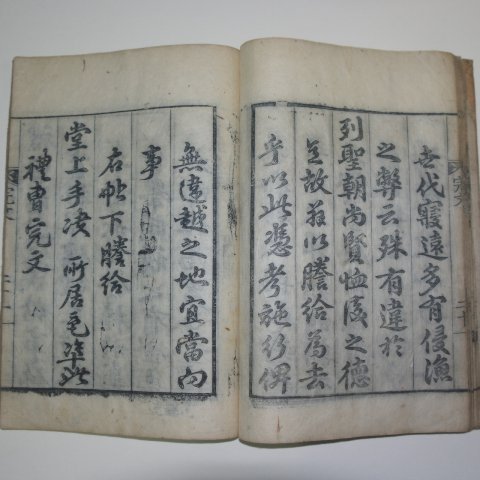 世代寢遠多有侵漁
之弊云殊有違於
列聖朝尚賢恤後之德
意故玆以謄給爲去
乎以此憑考施行俾
無違越之地宜當向
事
右帖下謄給
堂上手决 所居邑準此
禮曹完文
完文